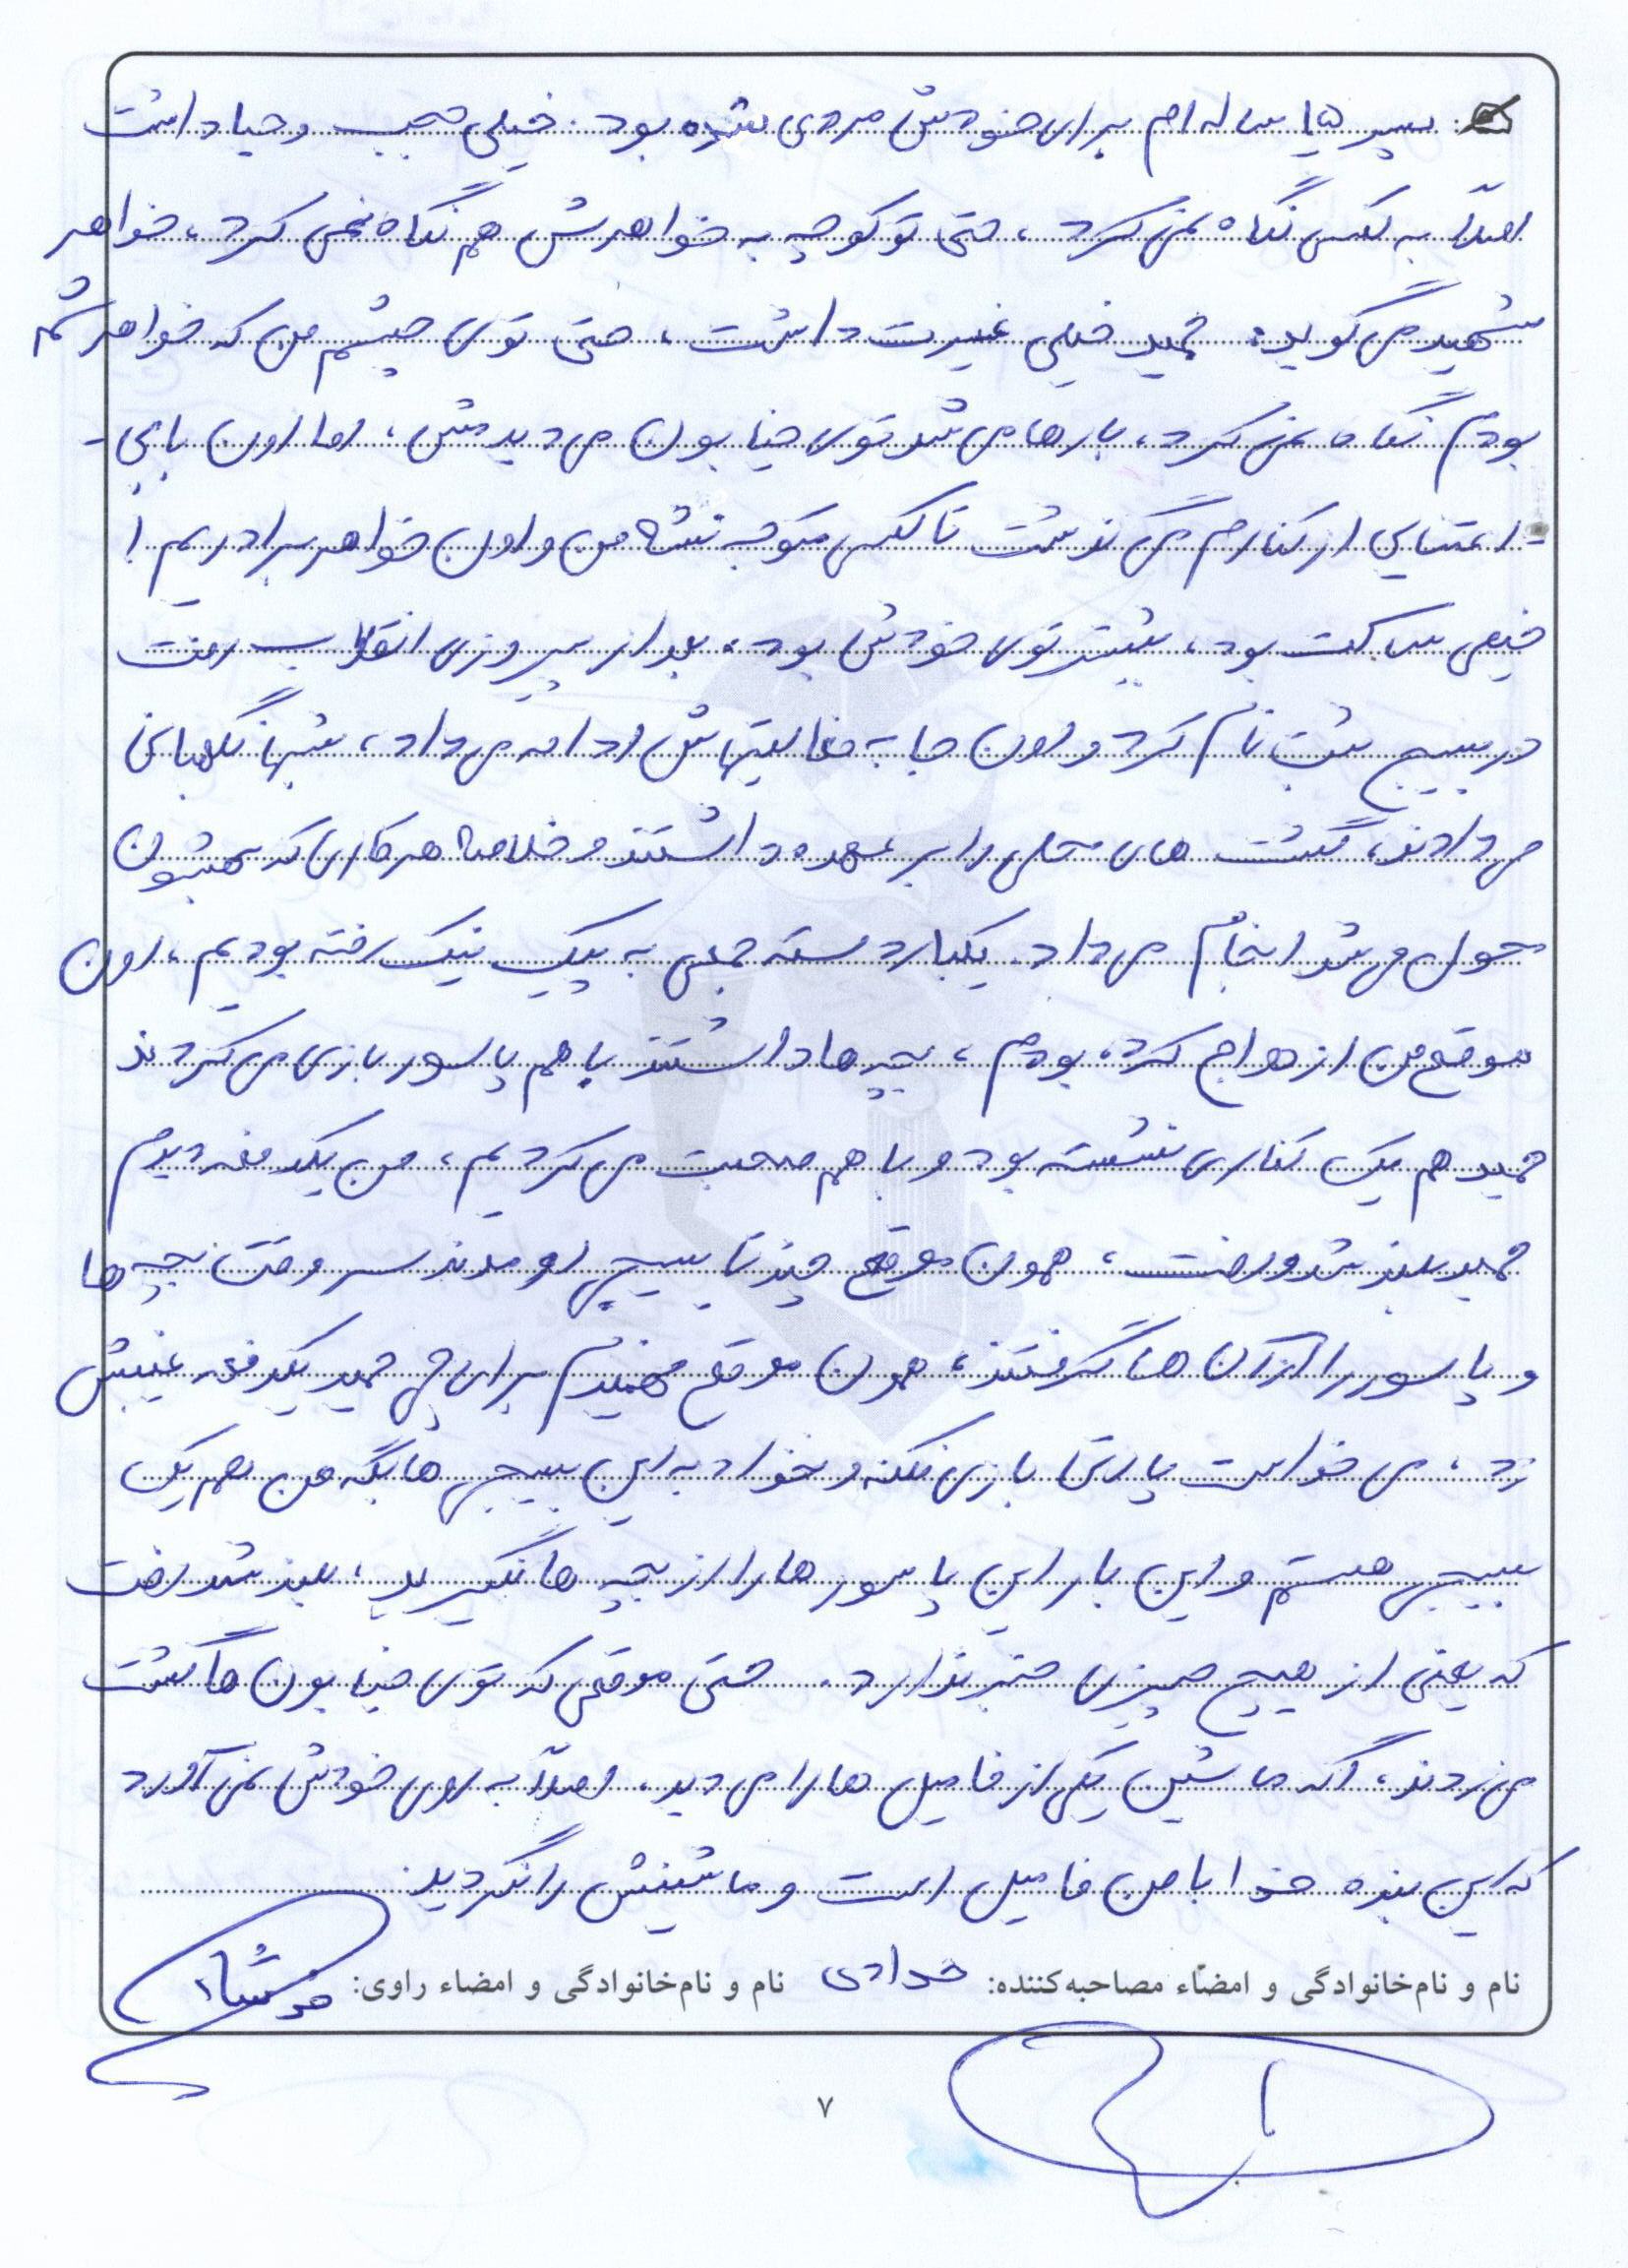 پسر ۱۵ ساله ام برای خودش مردی شده بود. خیلی نجیب و حیا داشت
اصلاً به کسی نگاه نمی کرد، حتی تو کوچه به خواهرش هم نگاه نمی کرد، خواهر
شهید می گوید: حمید خیلی غیرت داشت، حتی توی چشم من که خواهرشم
بودم نگاه نمی کرد، بارها می شد توی خیابون می دیدمش، اما اون با بی-
-اعتنایی از کنارم می گذشت تا کسی متوجه نشه من و اون خواهر برادریم!
خیلی ساکت بود، بیشتر توی خودش بود. بعد از پیروزی انقلاب رفت
در بسیج ثبت نام کرد و اون جا به فعالیتهاش ادامه می داد، شبها نگهبانی
می دادند، گشت های محلی را بر عهده داشتند و خلاصه هر کاری که بهشون
محول می شد انجام می داد. یکبار دسته جمعی به پیک نیک رفته بودیم، اون
موقع من ازدواج کرده بودم، بچه ها داشتند با هم پاسور بازی می کردند
حمید هم یک کناری نشسته بود و با هم صحبت می کردیم، من یکدفعه دیدم
حمید بلند شد و رفت، همون موقع چند تا بسیجی اومدند سر وقت بچه ها
و پاسور را از آن ها گرفتند، همون موقع فهمیدم برای چی حمید یکدفعه غیبش
زد، می خواست پارتی بازی نکنه و نخواد به این بسیجی ها بگه من هم یک
بسیجی هستم و این بار این پاسور ها را از بچه ها نگیرید، بلند شد رفت
که یعنی از هیچ چیزی خبر ندارد. حتی موقعی که توی خیابون ها گشت
می زدند، اگه ماشین یکی از فامیل ها را می دید، اصلاً به روی خودش نمی آورد
که این بنده خدا با من فامیل است و ماشینش را نگردید.
نام و نام‌خانوادگی و امضاء مصاحبه‌کننده: نام و نام‌خانوادگی و امضاء راوی:
۷